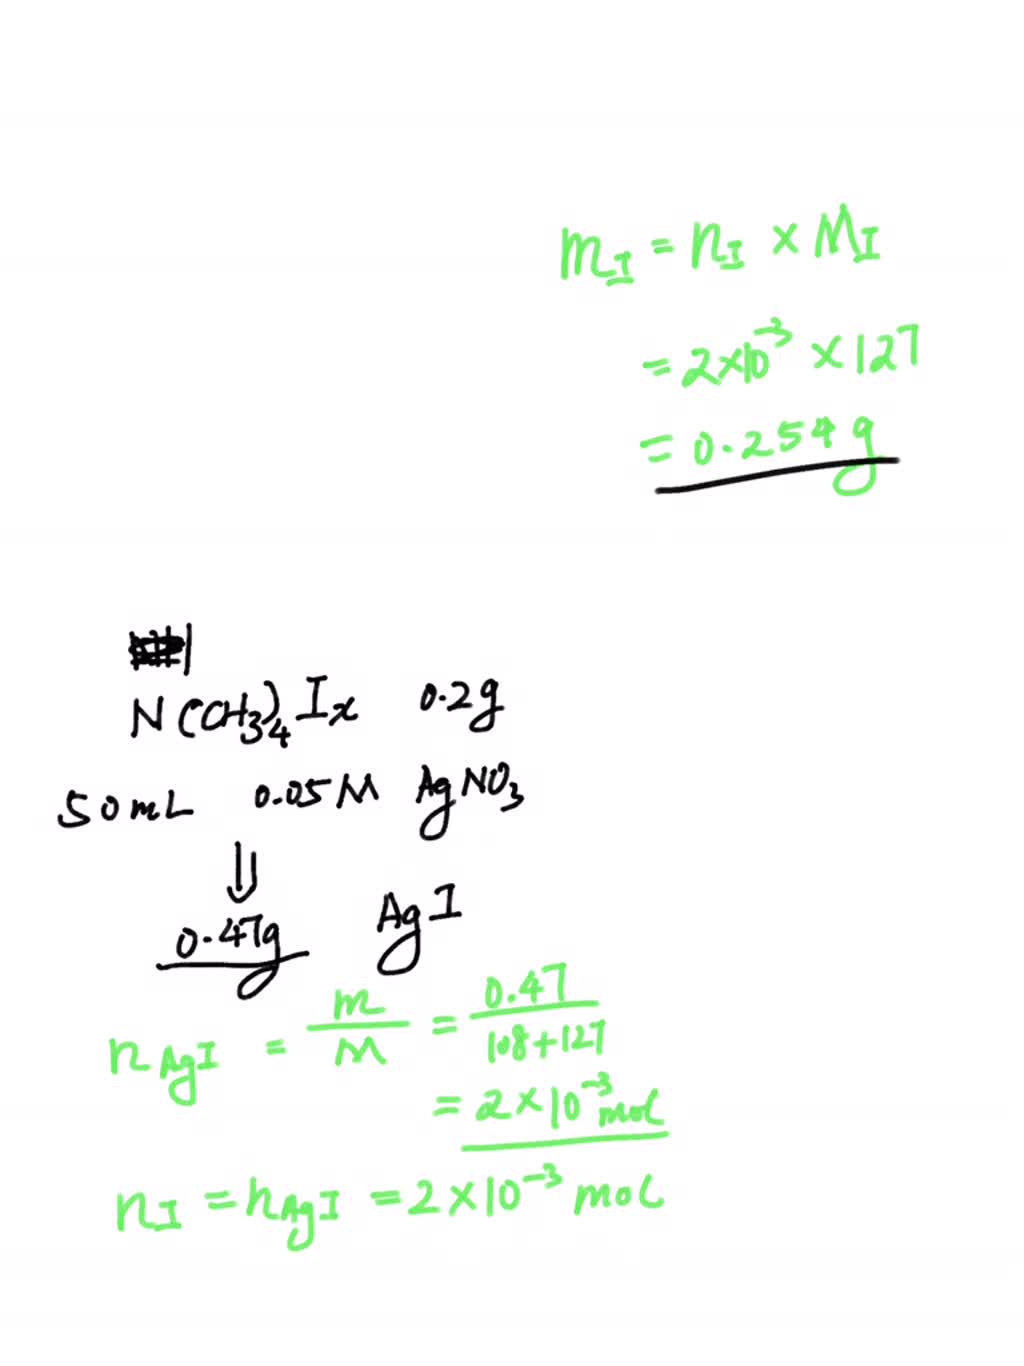 m_I = n_I × M_I
= 2×10⁻³ ×127
= 0.254 g
N(CH₃)₄ Ix 0.2g
50 mL 0.05 M AgNO₃
⇓
0.47g AgI
n_AgI = m/M = 0.47/(108+127)
= 2×10⁻³ mol
n_I = n_AgI = 2×10⁻³ mol